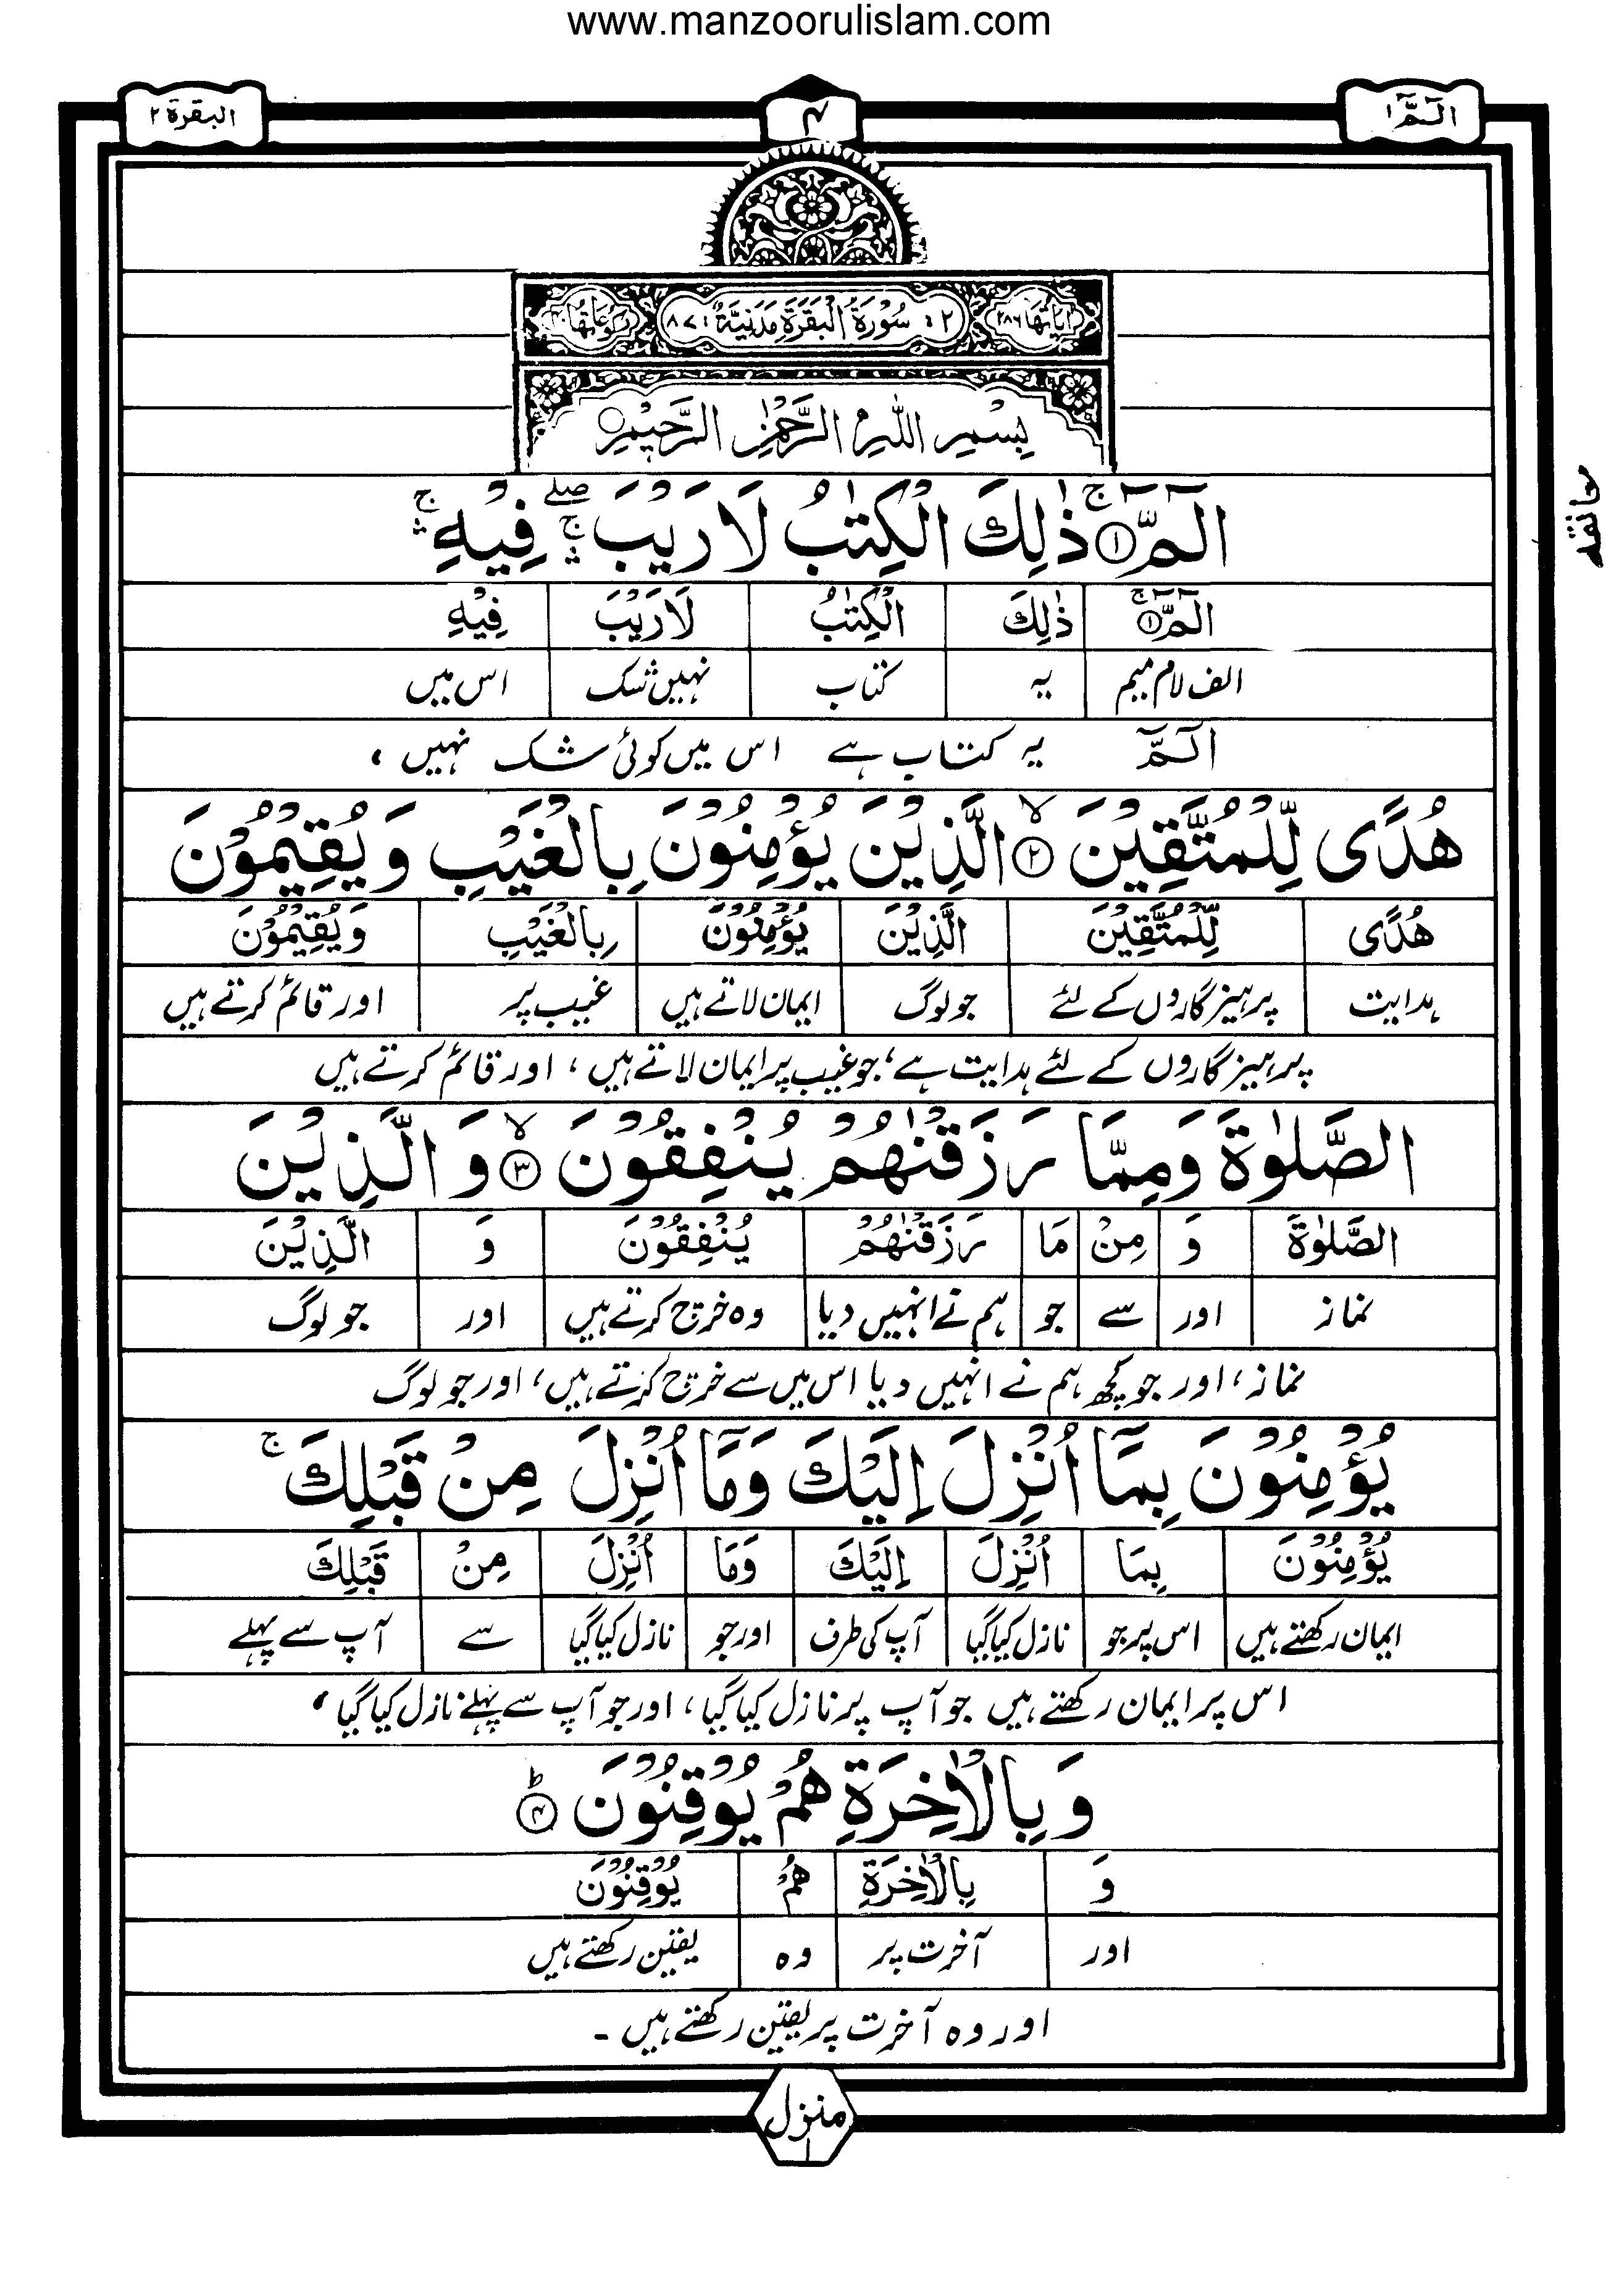 www.manzoorulislam.com
الٓـمّٓ ١
۴
البقرة ٢
اٰيَاتُهَا ٢٨٦ ٢: سُوْرَةُ الْبَقَرَةِ مَدَنِيَّةٌ ٨٧: رُكُوْعَاتُهَا
بِسْمِ اللّٰهِ الرَّحْمٰنِ الرَّحِيْمِ
الٓمّٓ ۚ ١ ذٰلِكَ الْكِتٰبُ لَا رَيْبَ ۛۚۖ فِيْهِ ۛۚ
معانقه
الٓمّٓ ۚ ١ ذٰلِكَ الْكِتٰبُ لَا رَيْبَ فِيْهِ
الف لام میم یہ کتاب نہیں شک اس میں
الٓمّٓ یہ کتاب ہے اس میں کوئی شک نہیں ،
هُدًى لِّلْمُتَّقِيْنَ ۙ ٢ الَّذِيْنَ يُؤْمِنُوْنَ بِالْغَيْبِ وَيُقِيْمُوْنَ
هُدًى لِّلْمُتَّقِيْنَ الَّذِيْنَ يُؤْمِنُوْنَ بِالْغَيْبِ وَيُقِيْمُوْنَ
ہدایت پرہیزگاروں کے لئے جو لوگ ایمان لاتے ہیں غیب پر اور قائم کرتے ہیں
پرہیزگاروں کے لئے ہدایت ہے ، جو غیب پر ایمان لاتے ہیں ، اور قائم کرتے ہیں
الصَّلٰوةَ وَمِمَّا رَزَقْنٰهُمْ يُنْفِقُوْنَ ۙ ٣ وَ الَّذِيْنَ
الصَّلٰوةَ وَ مِنْ مَا رَزَقْنٰهُمْ يُنْفِقُوْنَ وَ الَّذِيْنَ
نماز اور سے جو ہم نے انہیں دیا وہ خرچ کرتے ہیں اور جو لوگ
نماز ، اور جو کچھ ہم نے انہیں دیا اس میں سے خرچ کرتے ہیں ، اور جو لوگ
يُؤْمِنُوْنَ بِمَآ اُنْزِلَ اِلَيْكَ وَمَآ اُنْزِلَ مِنْ قَبْلِكَ ۚ
يُؤْمِنُوْنَ بِمَا اُنْزِلَ اِلَيْكَ وَمَا اُنْزِلَ مِنْ قَبْلِكَ
ایمان رکھتے ہیں اس پر جو نازل کیا گیا آپ کی طرف اور جو نازل کیا گیا سے آپ سے پہلے
اس پر ایمان رکھتے ہیں جو آپ پر نازل کیا گیا ، اور جو آپ سے پہلے نازل کیا گیا ،
وَ بِالْاٰخِرَةِ هُمْ يُوْقِنُوْنَ ؕ ۴
وَ بِالْاٰخِرَةِ هُمْ يُوْقِنُوْنَ
اور آخرت پر وہ یقین رکھتے ہیں
اور وہ آخرت پر یقین رکھتے ہیں ۔
منزل ١